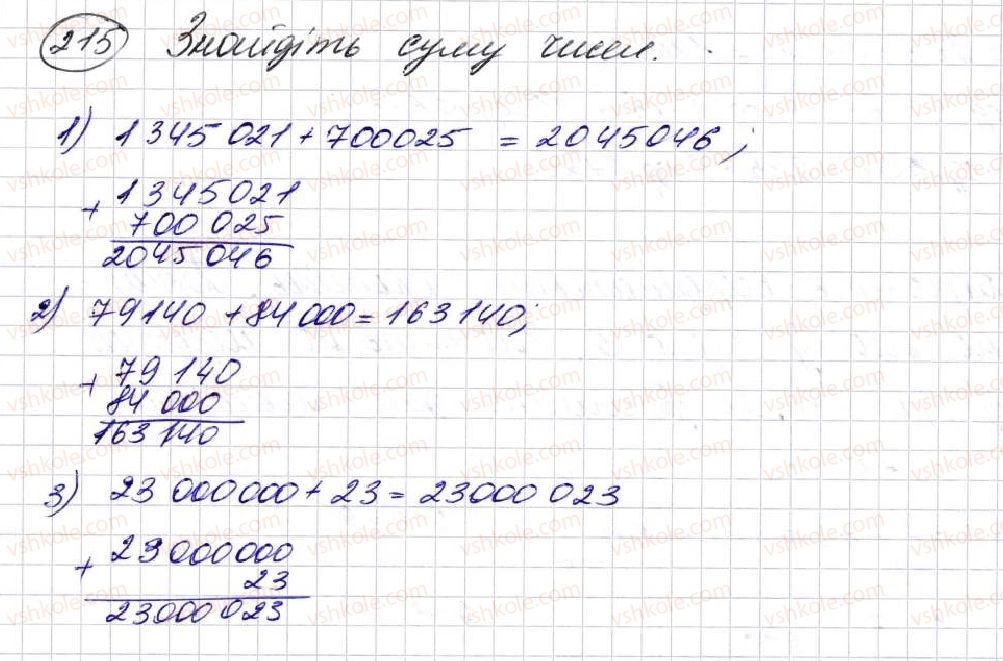 215 Знайдіть суму чисел.
1) 1 345 021 + 700025 = 2045046;
+ 1 345 021
700 025
2045 046
2) 79140 + 84 000 = 163 140;
+ 79 140
84 000
163 140
3) 23 000 000 + 23 = 23000 023
+ 23 000 000
23
23000 023